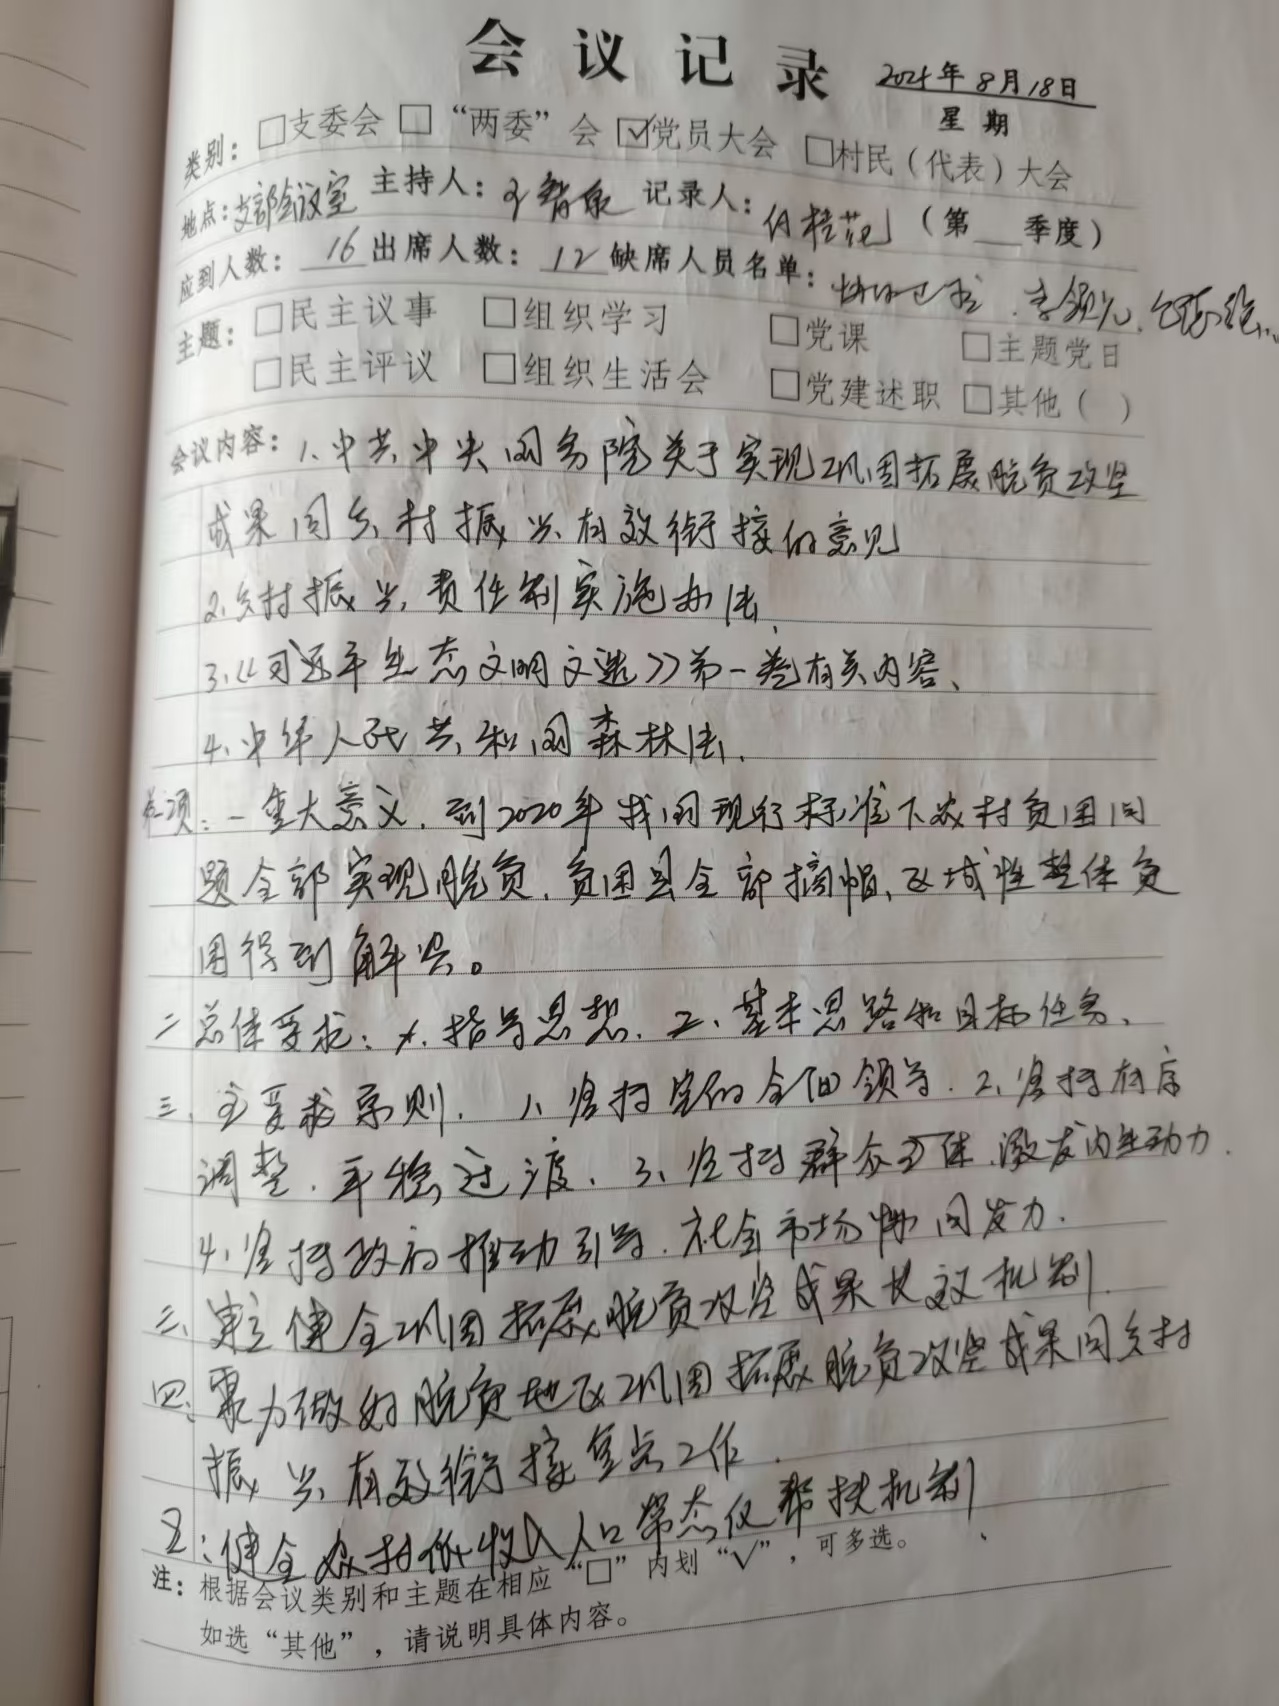 会议记录 2024年8月18日
星期
类别：□支委会 □“两委”会 ☑党员大会 □村民（代表）大会
地点：支部会议室 主持人： 记录人： （第 季度）
应到人数：16 出席人数：12 缺席人员名单：
主题：□民主议事 □组织学习 □党课 □主题党日
□民主评议 □组织生活会 □党建述职 □其他（ ）
会议内容：1、中共中央国务院关于实现巩固拓展脱贫攻坚
成果同乡村振兴有效衔接的意见
2、乡村振兴责任制实施办法、
3、《习近平生态文明文选》第一卷有关内容、
4、中华人民共和国森林法、
第一项：一重大意义．到2020年我国现行标准下农村贫困问
题全部实现脱贫．贫困县全部摘帽、区域性整体贫
困得到解决。
二总体要求：1、指导思想．2、基本思路和目标任务、
三、主要求原则．1、坚持党的全面领导．2、坚持有序
调整．平稳过渡．3、坚持群众主体．激发内生动力．
4、坚持政府推动引导．社会市场协同发力．
三、建立健全巩固拓展脱贫攻坚成果长效机制．
四、聚力做好脱贫地区巩固拓展脱贫攻坚成果同乡村
振兴有效衔接重点工作．
五：健全农村低收入人口常态化帮扶机制、
注：根据会议类别和主题在相应“□”内划“√”，可多选。
如选“其他”，请说明具体内容。